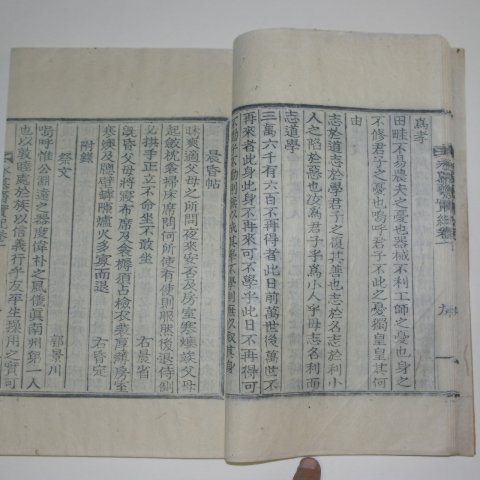 為孝
田畦不易農夫之憂也器械不利工師之憂也身之
不修君子之憂也嗚呼君子不此之憂獨皇皇其何
由
志道學
志於道志於學君子之復其善也志於名志於利小
人之陷於惡也汝為君子乎為小人乎毋志名利而
三萬六千有六百不再得者此日前萬世後萬世不
再來者此身此身不再來可不學乎此日不再得可
晨昏帖
昧爽適父母之所問夜來安否及房室寒煖玆父母
起斂枕衾掃床席問何所使有使則服候後退侍側
必拱手正立不命坐不敢坐
右晨省
旣昏父母將寢布席及衾褥須占檢衣裝厚薄房室
寒燠及鹽壁罅隙爐火多寡而退
右昏定
附錄
祭文
鄭景川
嗚呼惟公淵遠之器度偉朴之風儀眞南州第一人
以敦睦處於族以信義行乎友平生操用之實可